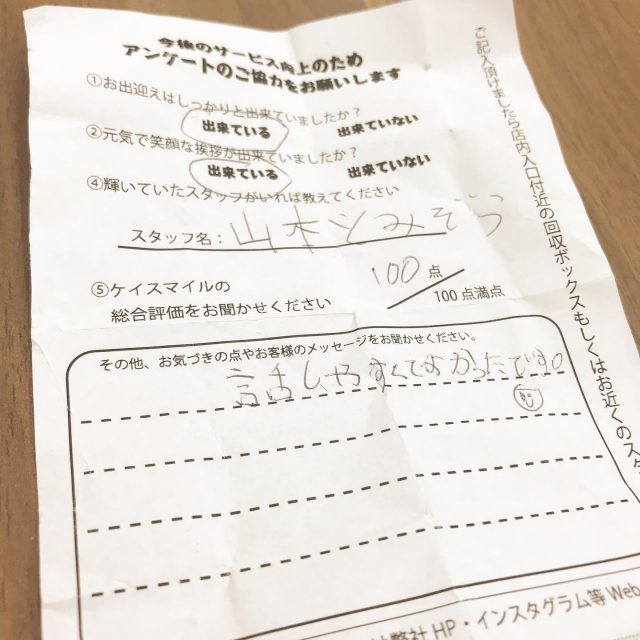 今後のサービス向上のため
アンケートのご協力をお願いします
①お出迎えはしっかりと出来ていましたか？
出来ている 出来ていない
②元気で笑顔な挨拶が出来ていましたか？
出来ている 出来ていない
④輝いていたスタッフがいれば教えてください
スタッフ名： 山本とみぞう
⑤ケイスマイルの
総合評価をお聞かせください
100点
100点満点
その他、お気づきの点やお客様のメッセージをお聞かせください。
話しやすくてよかったです。
ご記入頂けましたら店内入口付近の回収ボックスもしくはお近くのス
弊社HP・インスタグラム等Web